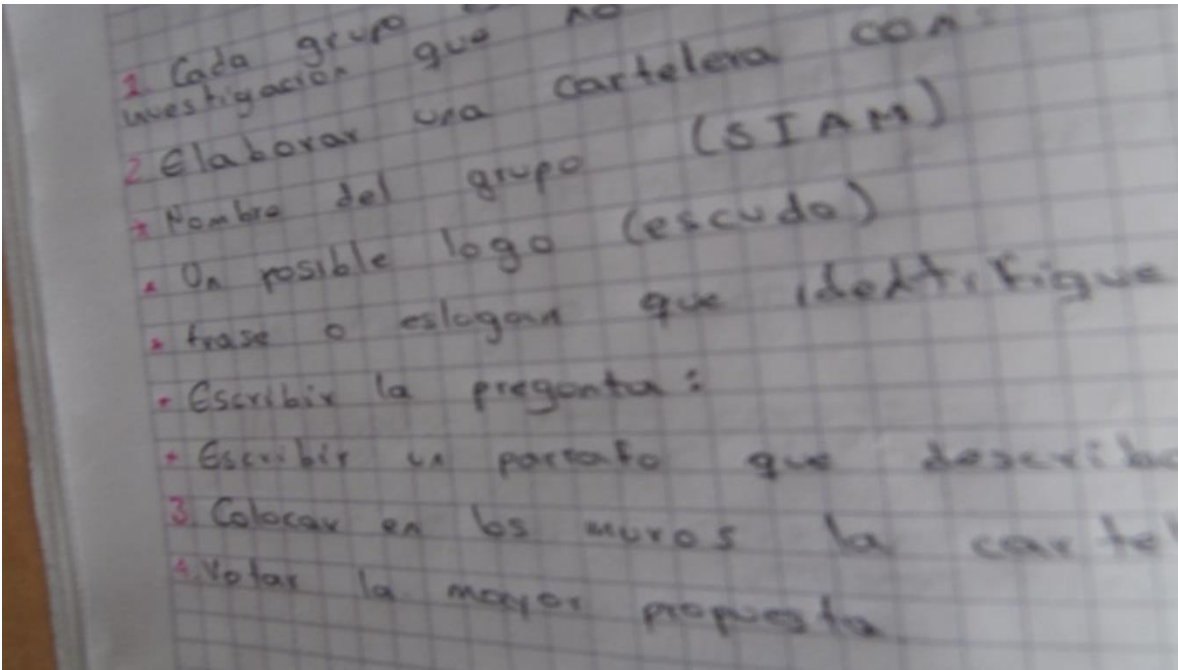 1. Cada grupo
investigación que no
2 Elaborar una cartelera con:
* Nombre del grupo (SIAM)
• Un posible logo (escudo)
• frase o eslogan que identifique
• Escribir la pregunta:
• Escribir un parrafo que describa
3 Colocar en los muros la cartel
4 Votar la mayor propuesta